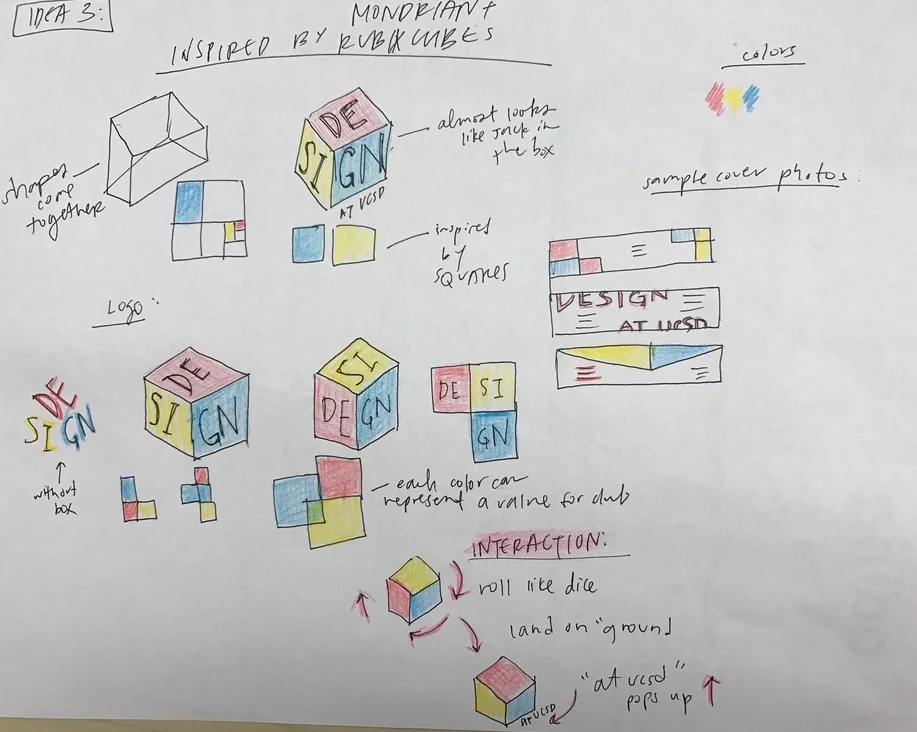 IDEA 3:
MONDRIAN +
INSPIRED BY RUBIX CUBES
colors
shapes
come
together
DE
SI
GN
AT VCSD
almost looks
like Jack in
the box
inspired
by
SQUARES
sample cover photos:
DESIGN
AT UCSD
Logo:
DE
SI GN
without
box
DE
SI
GN
SI
DE
GN
DE SI
GN
each color can
represent a value for club
INTERACTION:
roll like dice
land on "ground
"at vcsd"
pops up
AT VCSD